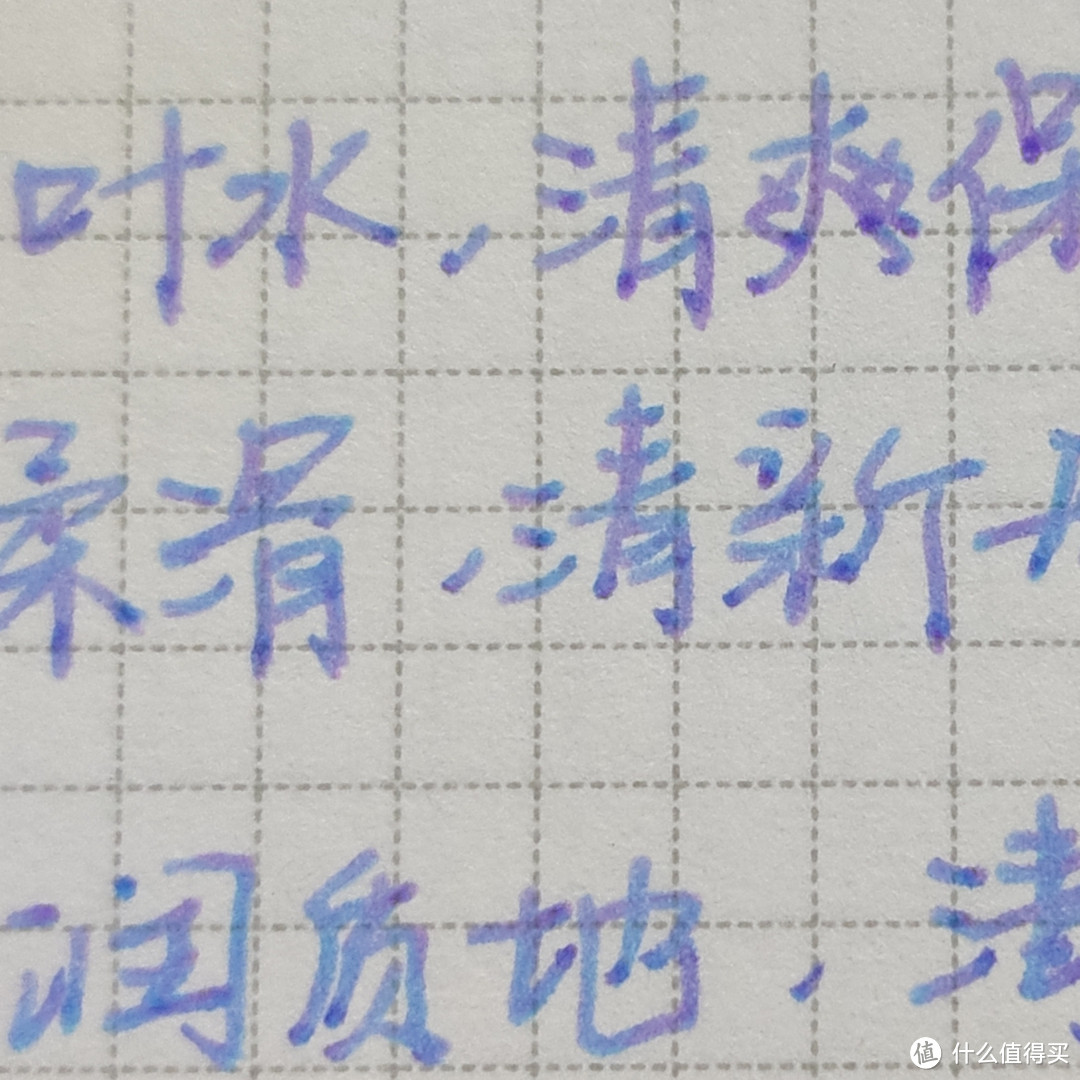 叶水，清爽保
柔滑，清新
润质地，清
值 什么值得买